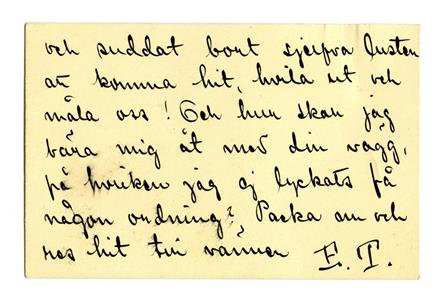 och suddat bort sjelfva lusten
att komma hit, hvila ut och
måla oss! Och hur skall jag
bära mig åt med din vägg,
på hvilken jag ej lyckats få
någon ordning? Packa nu och
res hit till vänner E. T.